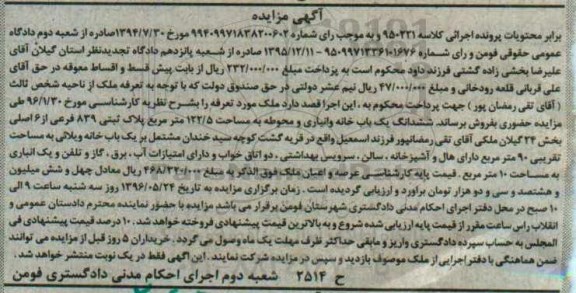 آگهی مزایده
برابر محتویات پرونده اجرائی کلاسه ۹۵۰۲۲۱ و به موجب رای شماره ۹۹۴۰۹۹۷۱۸۳۸۲۰۰۶۰۲ مورخ ۱۳۹۴/۷/۳۰ صادره از شعبه دوم دادگاه
عمومی حقوقی فومن و رای شماره ۹۵۰۹۹۷۱۳۳۶۱۰۱۶۷۶ - ۱۳۹۵/۱۲/۱۱ صادره از شعبه پانزدهم دادگاه تجدیدنظر استان گیلان آقای
علیرضا بخشی زاده گشتی فرزند داود محکوم است به پرداخت مبلغ ۲۳۲/۰۰۰/۰۰۰ ریال از بابت پیش قسط و اقساط معوقه در حق آقای
علی قربانی قلعه رودخانی و مبلغ ۴۷/۰۰۰/۰۰۰ ریال نیم عشر دولتی در حق صندوق دولت که با توجه به تعرفه ملک از ناحیه شخص ثالث
( آقای تقی رمضان پور ) جهت پرداخت محکوم به ، این اجرا قصد دارد ملک مورد تعرفه را بشرح نظریه کارشناسی مورخ ۹۶/۱/۳۰ طی
مزایده حضوری بفروش برساند. ششدانگ یک باب خانه وانباری و محوطه به مساحت ۱۲۲/۵ متر مربع پلاک ثبتی ۸۳۹ فرعی از ۶ اصلی
بخش ۲۳ گیلان ملکی آقای تقی رمضانپور فرزند اسمعیل واقع در قریه گشت کوچه سید خندان مشتمل بر یک باب خانه ویلائی به مساحت
تقریبی ۹۰ متر مربع دارای هال و آشپزخانه ، سالن ، سرویس بهداشتی ، دو اتاق خواب و دارای امتیازات آب ، برق ، گاز و تلفن و یک انباری
به مساحت ۱۰ متر مربع . قیمت پایه کارشناسی عرصه و اعیان ملک فوق الذکر به مبلغ ریال معادل چهل و شش میلیون
و هشتصد و سی و دو هزار تومان برآورد و ارزیابی گردیده است . زمان برگزاری مزایده به تاریخ ۱۳۹۶/۰۵/۲۴ روز سه شنبه ساعت ۹ الی
۱۰ صبح در محل دفتر اجرای احکام مدنی دادگستری شهرستان فومن برقرار می باشد مزایده با حضور نماینده محترم دادستان عمومی و
انقلاب راس ساعت مقرر از قیمت پایه ارزیابی شده شروع و به بالاترین قیمت پیشنهادی فروخته خواهد شد. ۱۰ درصد قیمت پیشنهادی فی
المجلس به حساب سپرده دادگستری واریز و مابقی حداکثر ظرف مهلت یک ماه وصول می گردد . خریداران ۵ روز قبل از مزایده می توانند
ضمن هماهنگی با دفتر اجرایی از ملک موصوف بازدید و سپس در مزایده شرکت نمایند . این آگهی فقط در یک نوبت منتشر خواهد شد .
ح ۲۵۱۴ شعبه دوم اجرای احکام مدنی دادگستری فومن